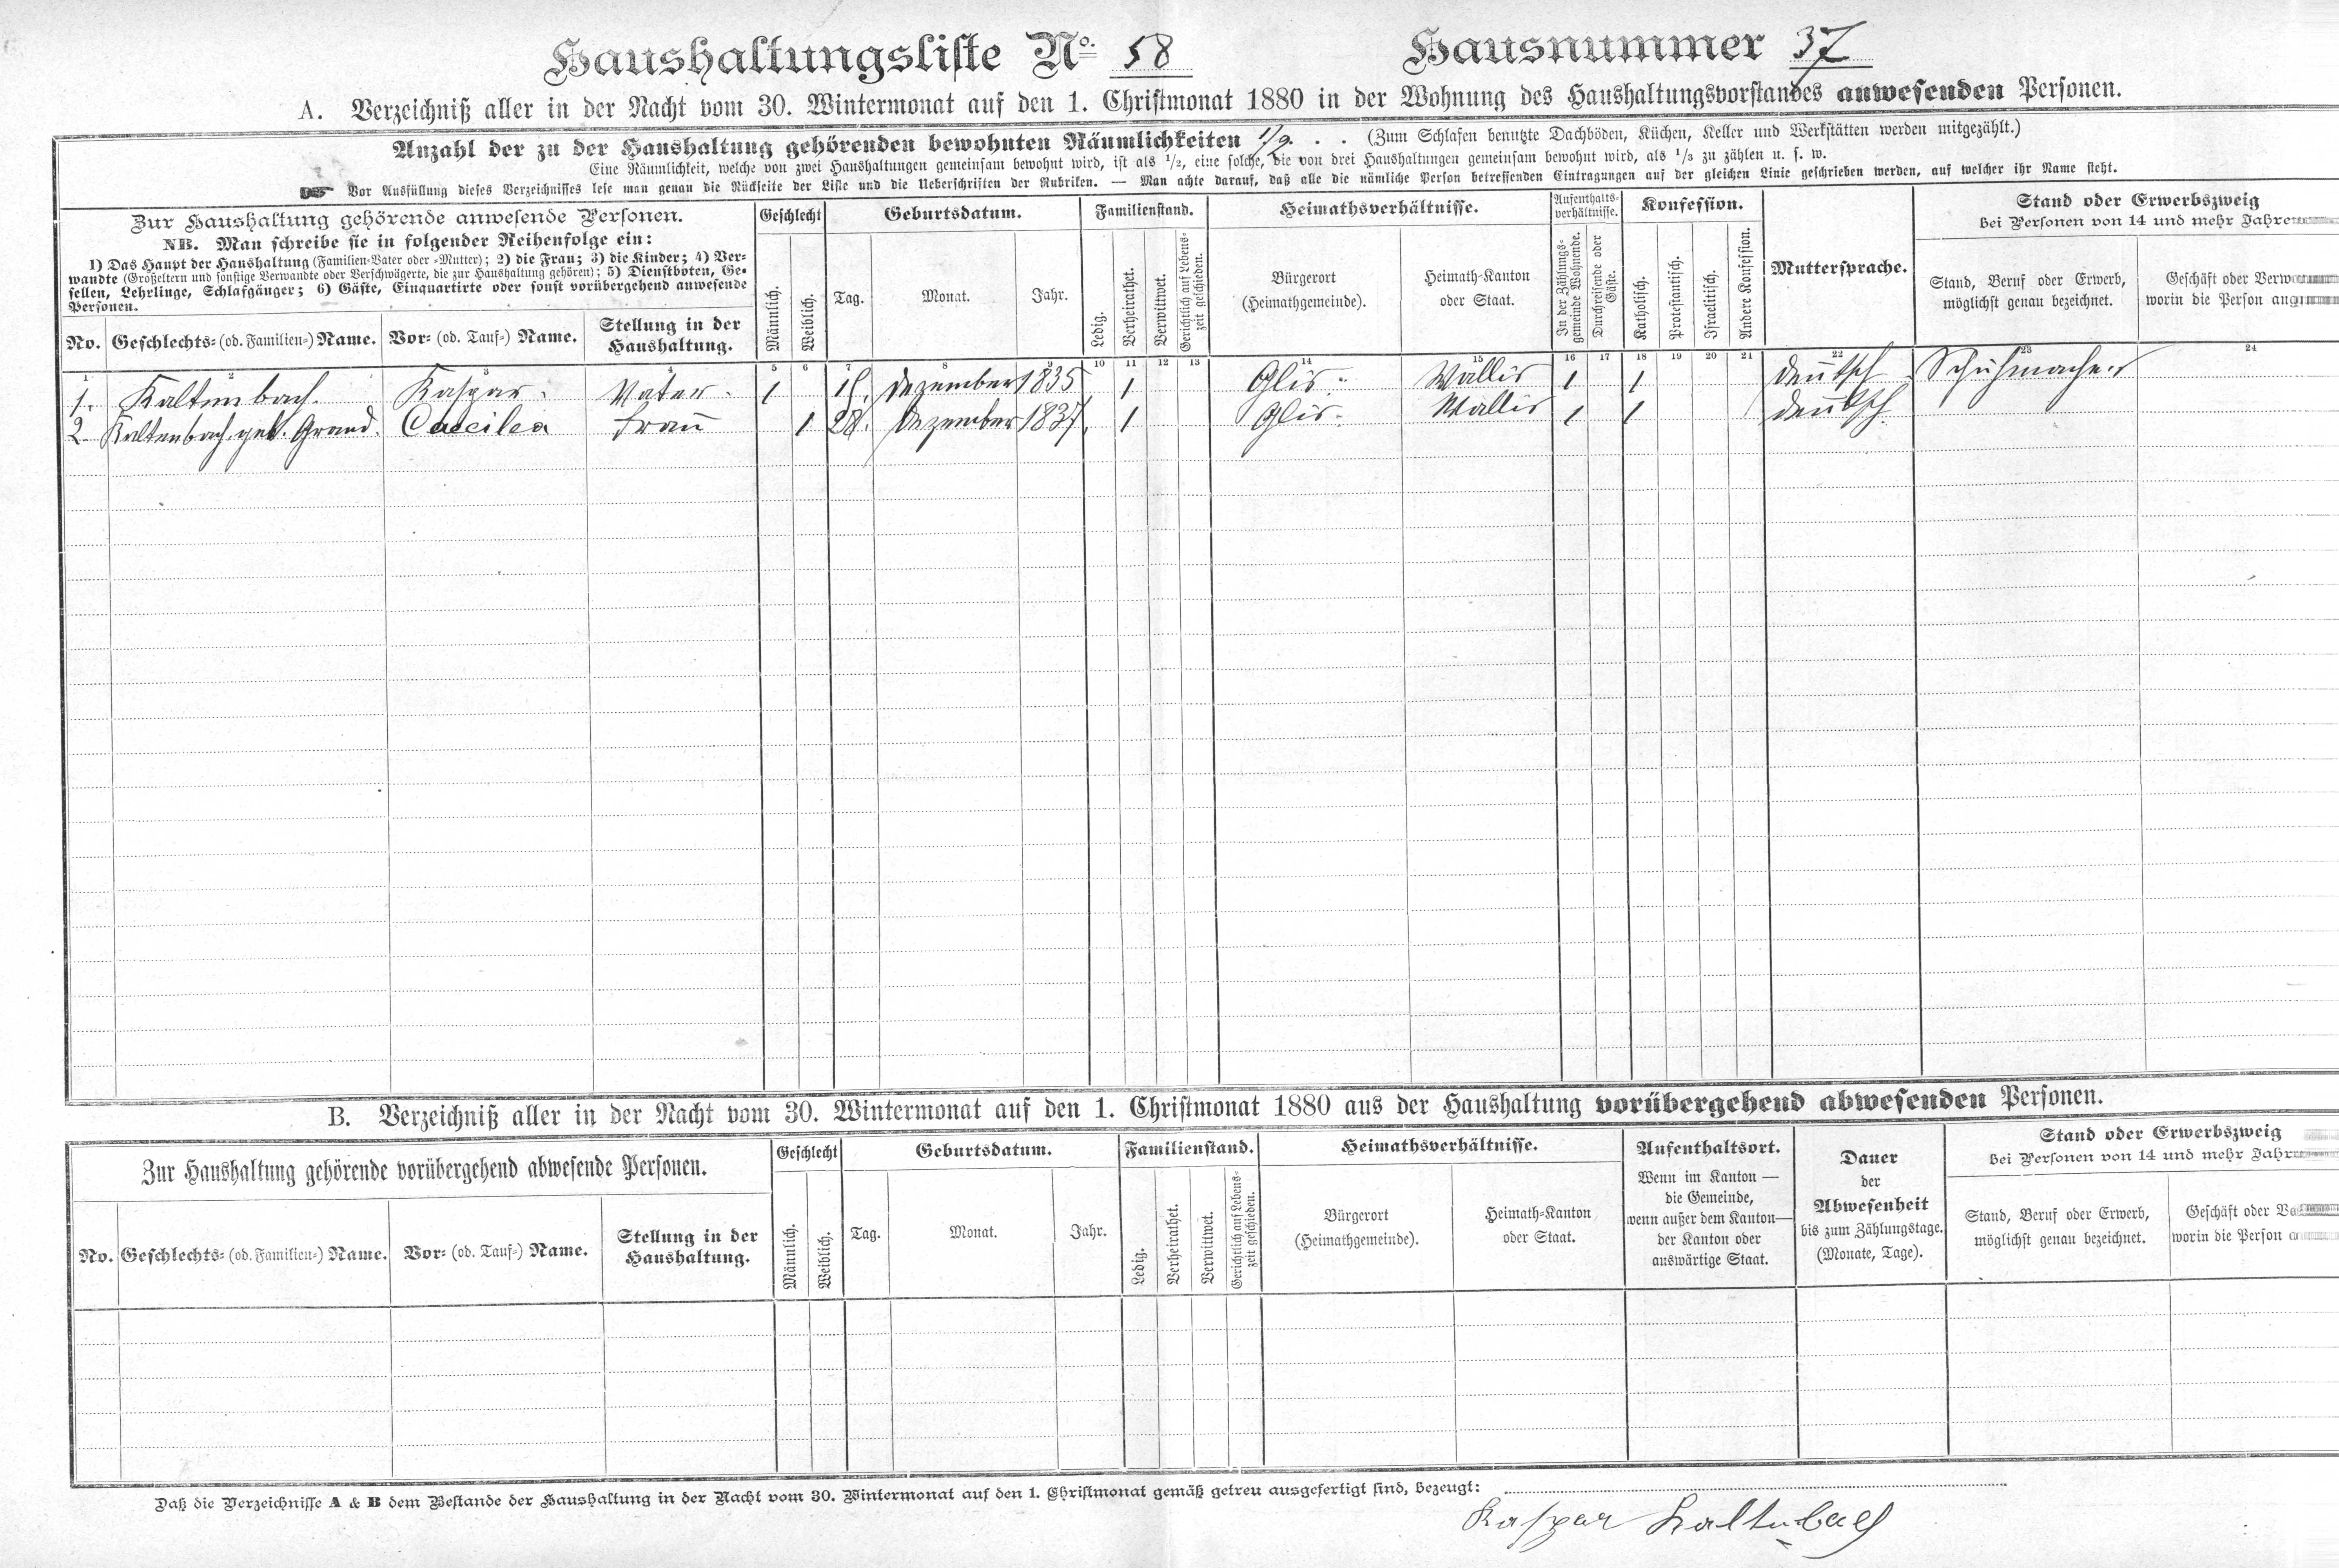 Haushaltungsliste No. 58 Hausnummer 37
A. Verzeichniß aller in der Nacht vom 30. Wintermonat auf den 1. Christmonat 1880 in der Wohnung des Haushaltungsvorstandes anwesenden Personen.
Anzahl der zu der Haushaltung gehörenden bewohnten Räumlichkeiten 1/2. . . (Zum Schlafen benutzte Dachböden, Küchen, Keller und Werkstätten werden mitgezählt.)
Eine Räumlichkeit, welche von zwei Haushaltungen gemeinsam bewohnt wird, ist als 1/2, eine solche, die von drei Haushaltungen gemeinsam bewohnt wird, als 1/3 zu zählen u. s. w.
Vor Ausfüllung dieses Verzeichnisses lese man genau die Rückseite der Liste und die Ueberschriften der Rubriken. — Man achte darauf, daß alle die nämliche Person betreffenden Eintragungen auf der gleichen Linie geschrieben werden, auf welcher ihr Name steht.
Zur Haushaltung gehörende anwesende Personen.
NB. Man schreibe sie in folgender Reihenfolge ein:
1) Das Haupt der Haushaltung (Familien-Vater oder -Mutter); 2) die Frau; 3) die Kinder; 4) Ver-
wandte (Großeltern und sonstige Verwandte oder Verschwägerte, die zur Haushaltung gehören); 5) Dienstboten, Ge-
sellen, Lehrlinge, Schlafgänger; 6) Gäste, Einquartirte oder sonst vorübergehend anwesende
Personen.
No. Geschlechts- (od. Familien-) Name. Vor- (od. Tauf-) Name. Stellung in der
Haushaltung.
Geschlecht
Männlich. Weiblich.
Geburtsdatum.
Tag. Monat. Jahr.
Familienstand.
Ledig. Verheirathet. Verwittwet. Gerichtlich auf Lebens-
zeit geschieden.
Heimathsverhältnisse.
Bürgerort
(Heimathgemeinde).
Heimath-Kanton
oder Staat.
Aufenthalts-
verhältnisse.
In der Zählungs-
gemeinde Wohnende.
Durchreisende oder
Gäste.
Konfession.
Katholisch. Protestantisch. Israelitisch. Andere Konfession.
Muttersprache.
Stand oder Erwerbszweig
bei Personen von 14 und mehr Jahre
Stand, Beruf oder Erwerb,
möglichst genau bezeichnet.
Geschäft oder Verw
worin die Person ang
1 2 3 4 5 6 7 8 9 10 11 12 13 14 15 16 17 18 19 20 21 22 23 24
1. Kaltenbach. Kaspar. Vater. 1 dezember 1835 1 Glis: Wallis 1 1 deutsch Schuhmacher
2. Kaltenbach geb. Grand. Caecilea frau 1 28. dezember 1837. 1 Glis: Wallis 1 1 deutsch.
B. Verzeichniß aller in der Nacht vom 30. Wintermonat auf den 1. Christmonat 1880 aus der Haushaltung vorübergehend abwesenden Personen.
Zur Haushaltung gehörende vorübergehend abwesende Personen.
No. Geschlechts- (od. Familien-) Name. Vor- (od. Tauf-) Name. Stellung in der
Haushaltung.
Geschlecht
Männlich. Weiblich.
Geburtsdatum.
Tag. Monat. Jahr.
Familienstand.
Ledig. Verheirathet. Verwittwet. Gerichtlich auf Lebens-
zeit geschieden.
Heimathsverhältnisse.
Bürgerort
(Heimathgemeinde).
Heimath-Kanton
oder Staat.
Aufenthaltsort.
Wenn im Kanton —
die Gemeinde,
wenn außer dem Kanton—
der Kanton oder
auswärtige Staat.
Dauer
der
Abwesenheit
bis zum Zählungstage.
(Monate, Tage).
Stand oder Erwerbszweig
bei Personen von 14 und mehr Jahr
Stand, Beruf oder Erwerb,
möglichst genau bezeichnet.
Geschäft oder Ve
worin die Person
Daß die Verzeichnisse A & B dem Bestande der Haushaltung in der Nacht vom 30. Wintermonat auf den 1. Christmonat gemäß getreu ausgefertigt sind, bezeugt:
Kaspar Kaltenbach